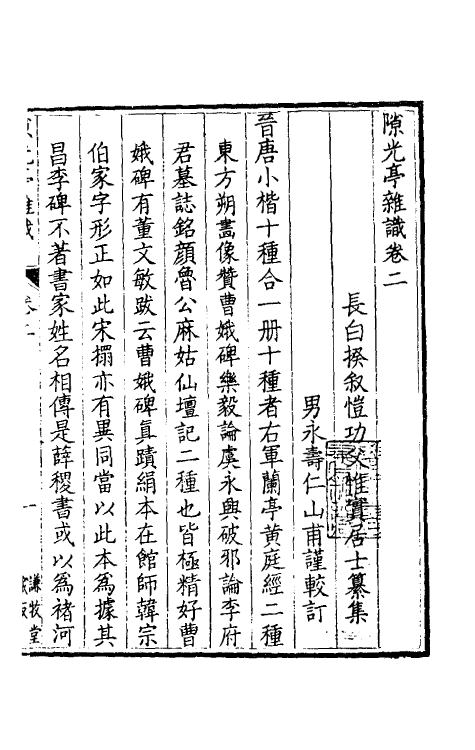 隙光亭雜識卷二
長白揆叙愷功父惟實居士纂集
男永壽仁山甫謹較訂
晉唐小楷十種合一册十種者右軍蘭亭黃庭經二種
東方朔畫像贊曹娥碑樂毅論虞永興破邪論李府
君墓誌銘顏魯公麻姑仙壇記二種也皆極精好曹
娥碑有董文敏跋云曹娥碑眞蹟絹本在館師韓宗
伯家字形正如此宋搨亦有異同當以此本為據其
昌李碑不著書家姓名相傳是薛稷書或以為褚河
卷二
一
謙牧堂